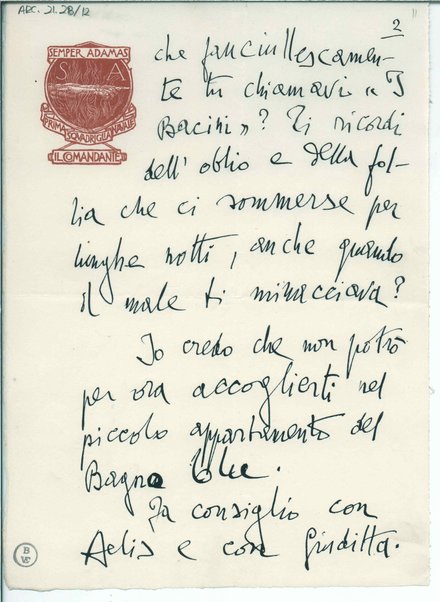 ARC. 21.28/12
2
SEMPER ADAMAS
S A
PRIMA SQUADRIGLIA NAVALE
IL COMANDANTE
che fanciullescamen-
te tu chiamavi « I
Bacini » ? Ti ricordi
dell'oblio e della fol-
lia che ci sommerse per
lunghe notti, anche quando
il male ti minacciava?
Io credo che non potrò
per ora accoglierti nel
piccolo appartamento del
Bagno blu.
Fa consiglio con
Aelis e con Giuditta.